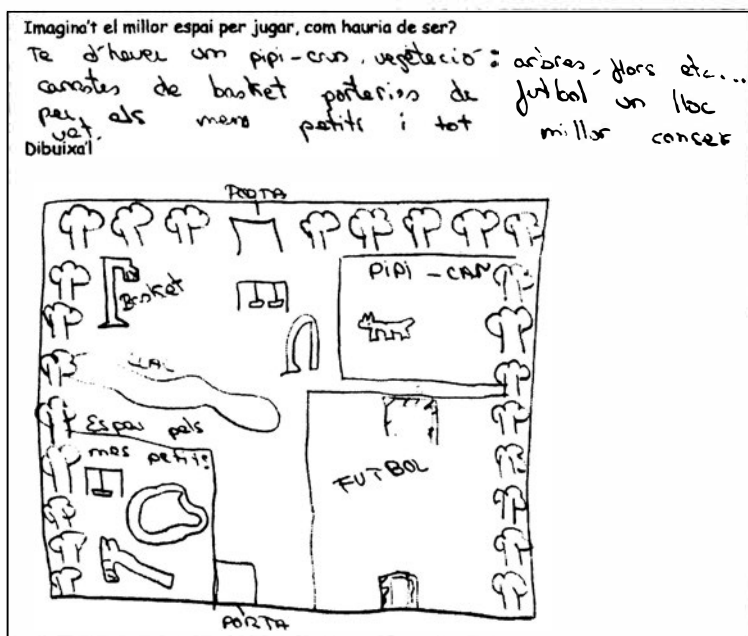 Imagina't el millor espai per jugar, com hauria de ser?
Te d'haver um pipi-can, vegetació: arbres, flors etc...
canastes de basket porteries de futbol un lloc
per als mes petits i tot millor conser
vat.
Dibuixa'l
PORTA
Basket
PIPI-CAN
LLAC
Espai pels
mes petits
FUTBOL
PORTA